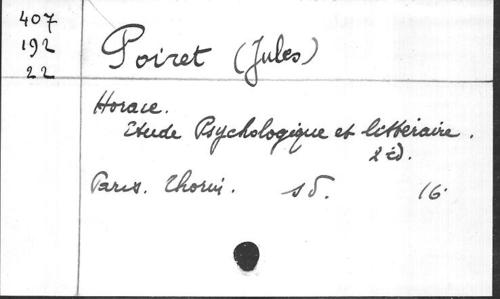 407
192
22
Poiret (Jules)
Horace.
Etude Psychologique et littéraire.
2 éd.
Paris. Thorin. s d. 16